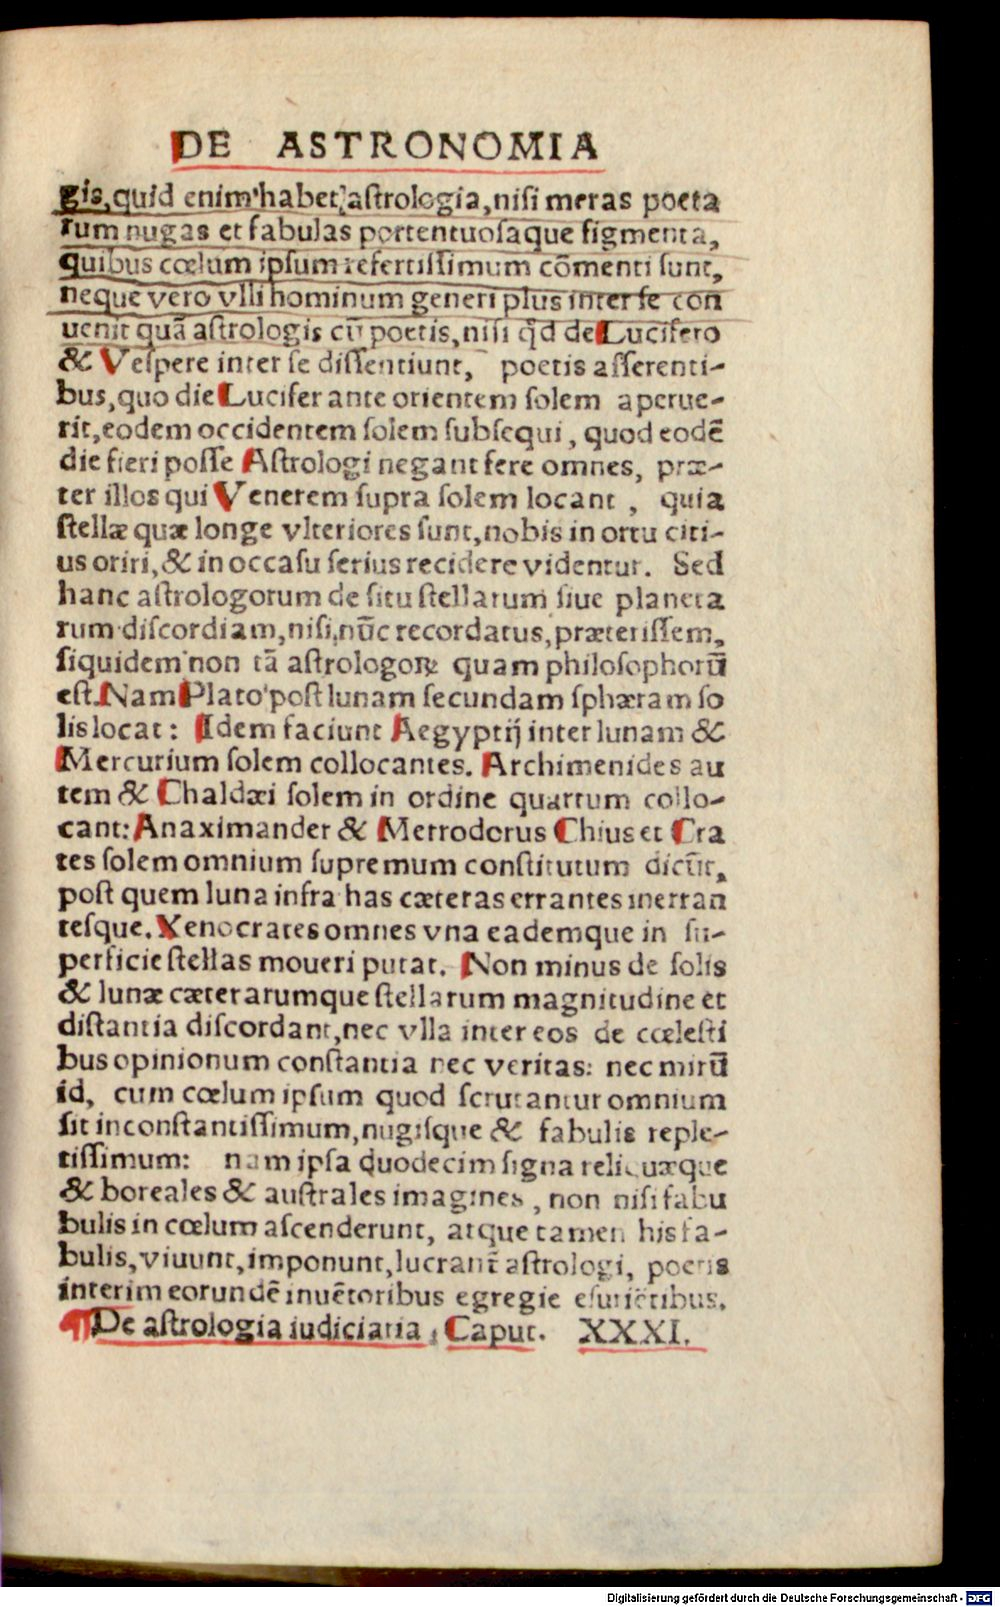 DE ASTRONOMIA
gis, quid enim habet astrologia, nisi meras poeta
rum nugas et fabulas portentuosaque figmenta,
quibus cœlum ipsum refertissimum cōmenti sunt,
neque vero vlli hominum generi plus inter se con
uenit quā astrologis cū poetis, nisi qd̄ de Lucifero
& Vespere inter se dissentiunt, poetis asserenti-
bus, quo die Lucifer ante orientem solem aperue-
rit, eodem occidentem solem subsequi, quod eodē
die fieri posse Astrologi negant fere omnes, præ-
ter illos qui Venerem supra solem locant, quia
stellæ quæ longe vlteriores sunt, nobis in ortu citi-
us oriri, & in occasu serius recidere videntur. Sed
hanc astrologorum de situ stellarum siue planeta
rum discordiam, nisi nūc recordatus, præterissem,
siquidem non tā astrologoꝝ quam philosophorū
est. Nam Plato post lunam secundam sphæram so
lis locat: Idem faciunt Aegyptij inter lunam &
Mercurium solem collocantes. Archimenides au
tem & Chaldæi solem in ordine quartum collo-
cant: Anaximander & Metrodorus Chius et Cra
tes solem omnium supremum constitutum dicūt,
post quem luna infra has cæteras errantes inerran
tesque. Xenocrates omnes vna eademque in su-
perficie stellas moueri putat. Non minus de solis
& lunæ cæterarumque stellarum magnitudine et
distantia discordant, nec vlla inter eos de cœlesti
bus opinionum constantia nec veritas: nec mirū
id, cum cœlum ipsum quod scrutantur omnium
sit inconstantissimum, nugisque & fabulis reple-
tissimum: nam ipsa duodecim signa reliquæque
& boreales & australes imagines, non nisi fabu
bulis in cœlum ascenderunt, atque tamen his fa-
bulis, viuunt, imponunt, lucrant̄ astrologi, poetis
interim eorundē inuētoribus egregie esuriētibus.
¶ De astrologia iudiciaria, Caput. XXXI.
Digitalisierung gefördert durch die Deutsche Forschungsgemeinschaft - DFG